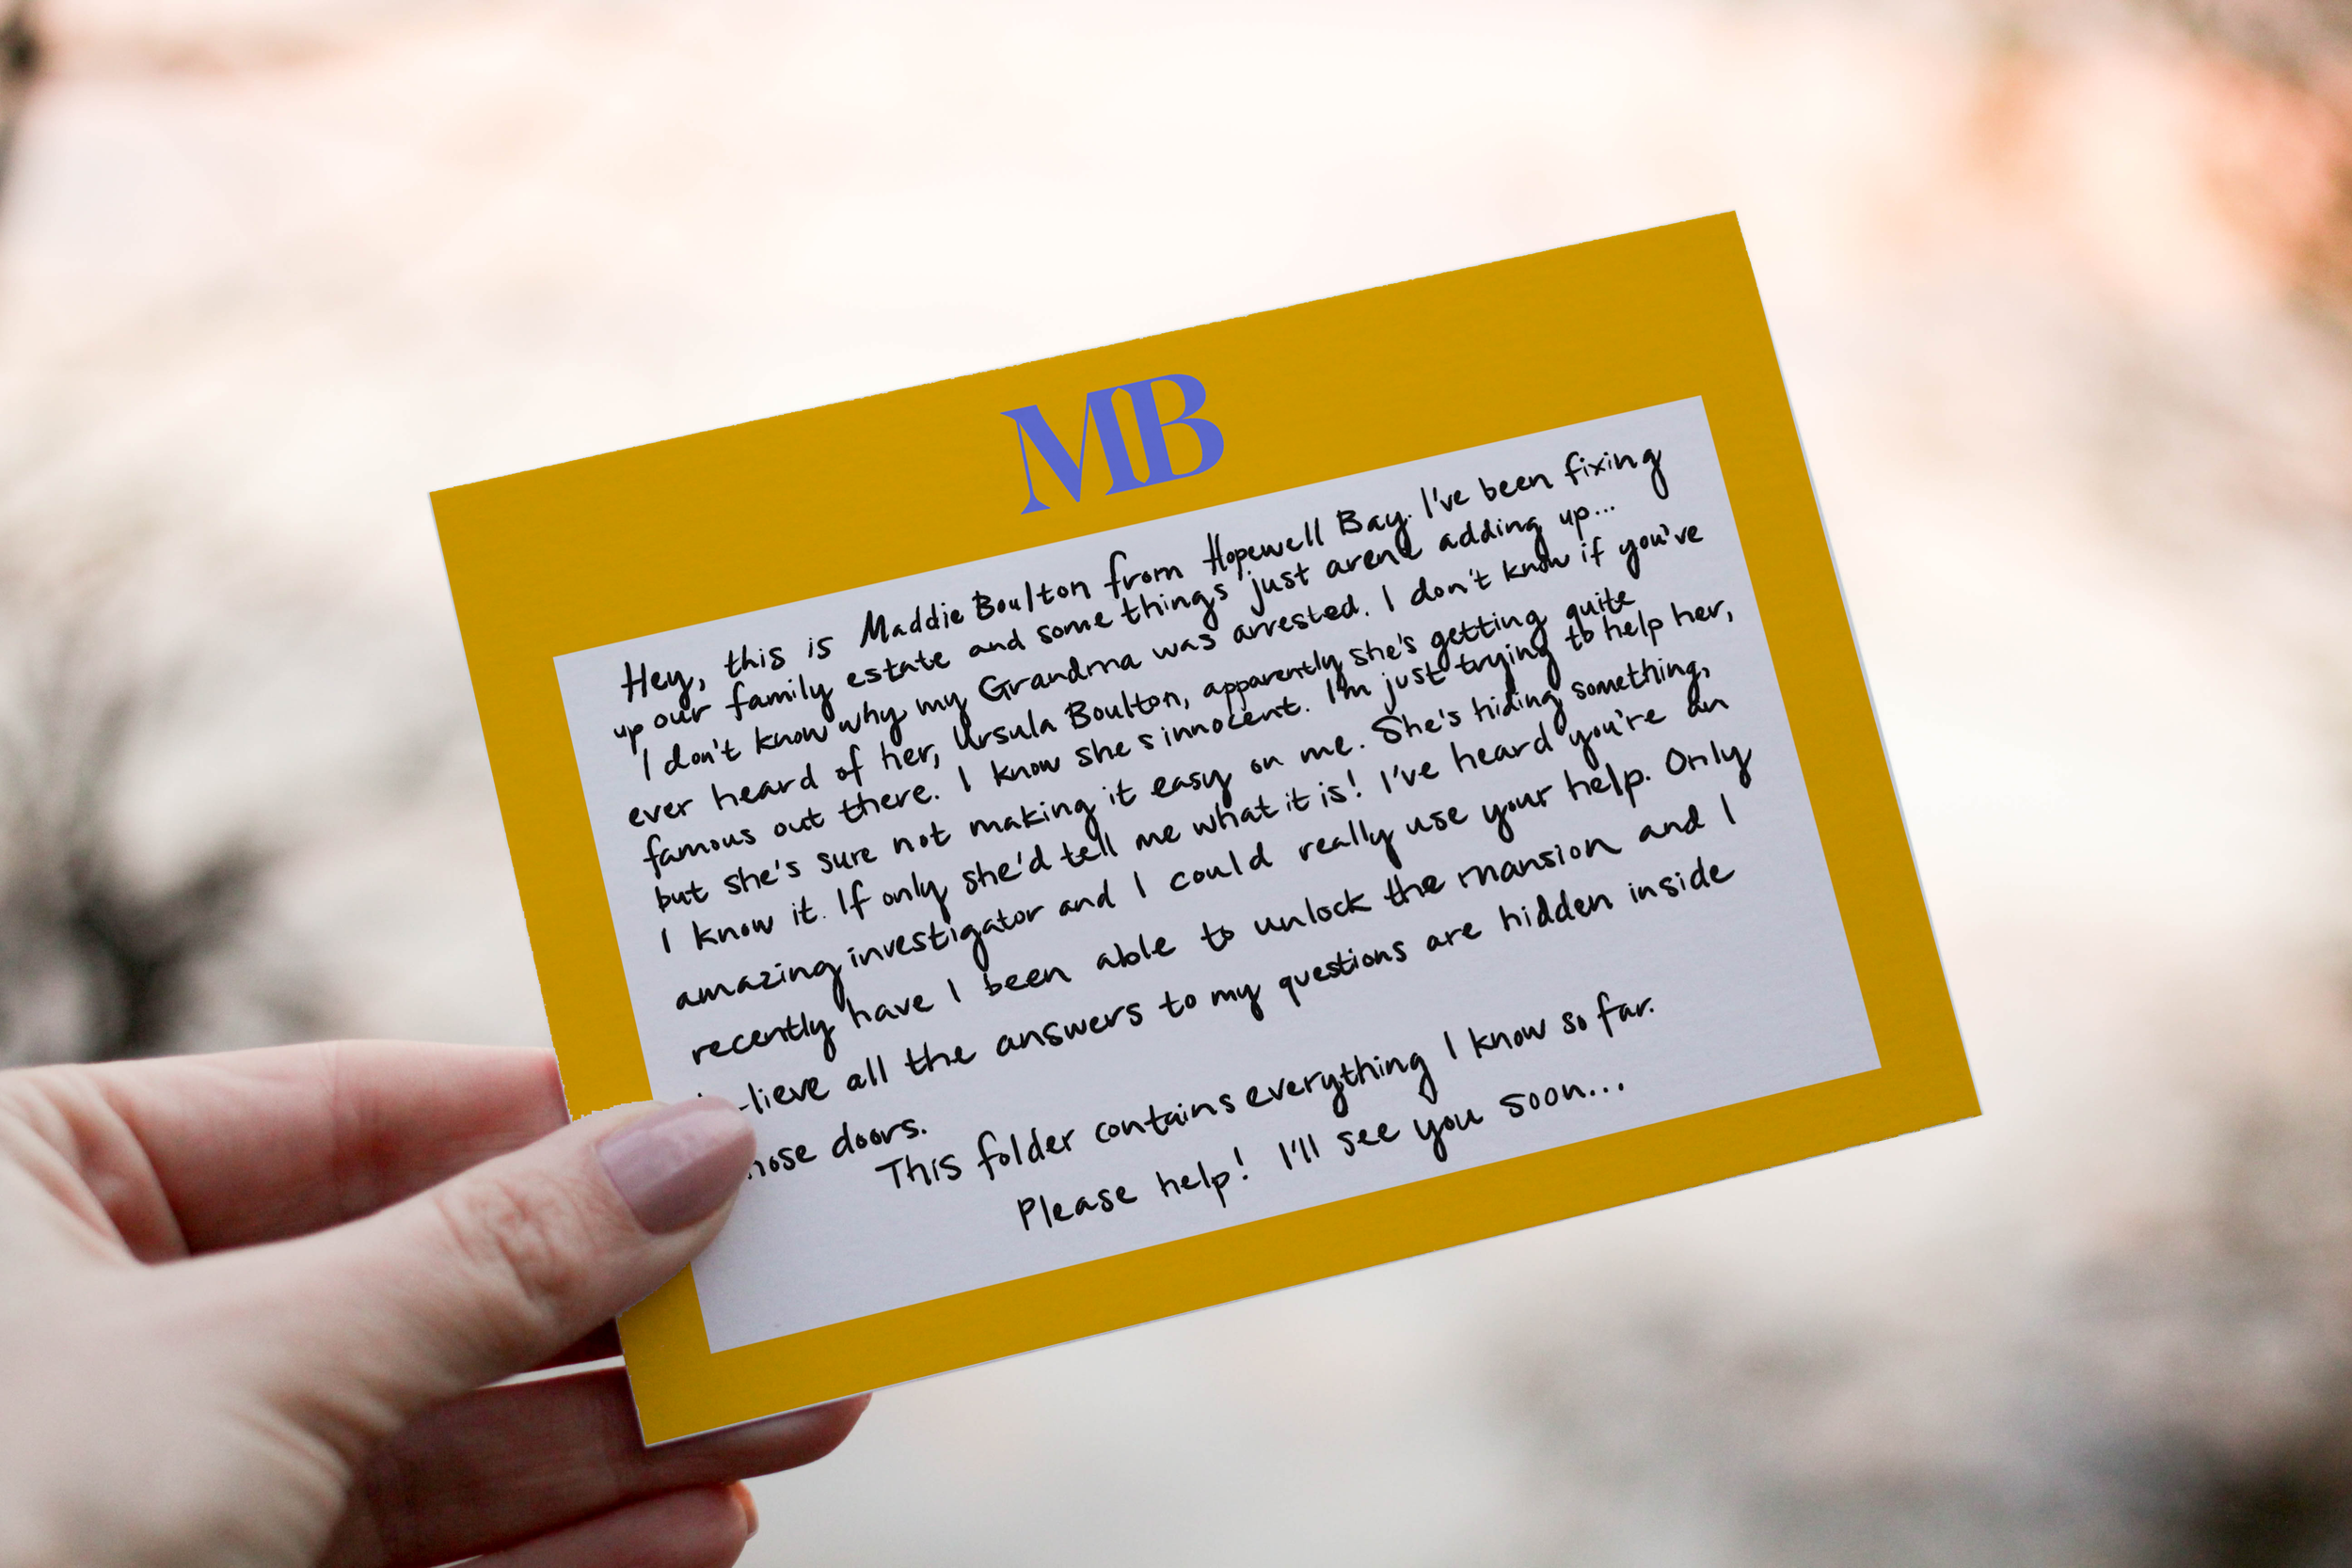 MB
Hey, this is Maddie Boulton from Hopewell Bay. I've been fixing
up our family estate and some things just aren't adding up...
I don't know why my Grandma was arrested. I don't know if you've
ever heard of her, Ursula Boulton, apparently she's getting quite
famous out there. I know she's innocent. I'm just trying to help her,
but she's sure not making it easy on me. She's hiding something,
I know it. If only she'd tell me what it is! I've heard you're an
amazing investigator and I could really use your help. Only
recently have I been able to unlock the mansion and I
lieve all the answers to my questions are hidden inside
hose doors.
This folder contains everything I know so far.
Please help! I'll see you soon...